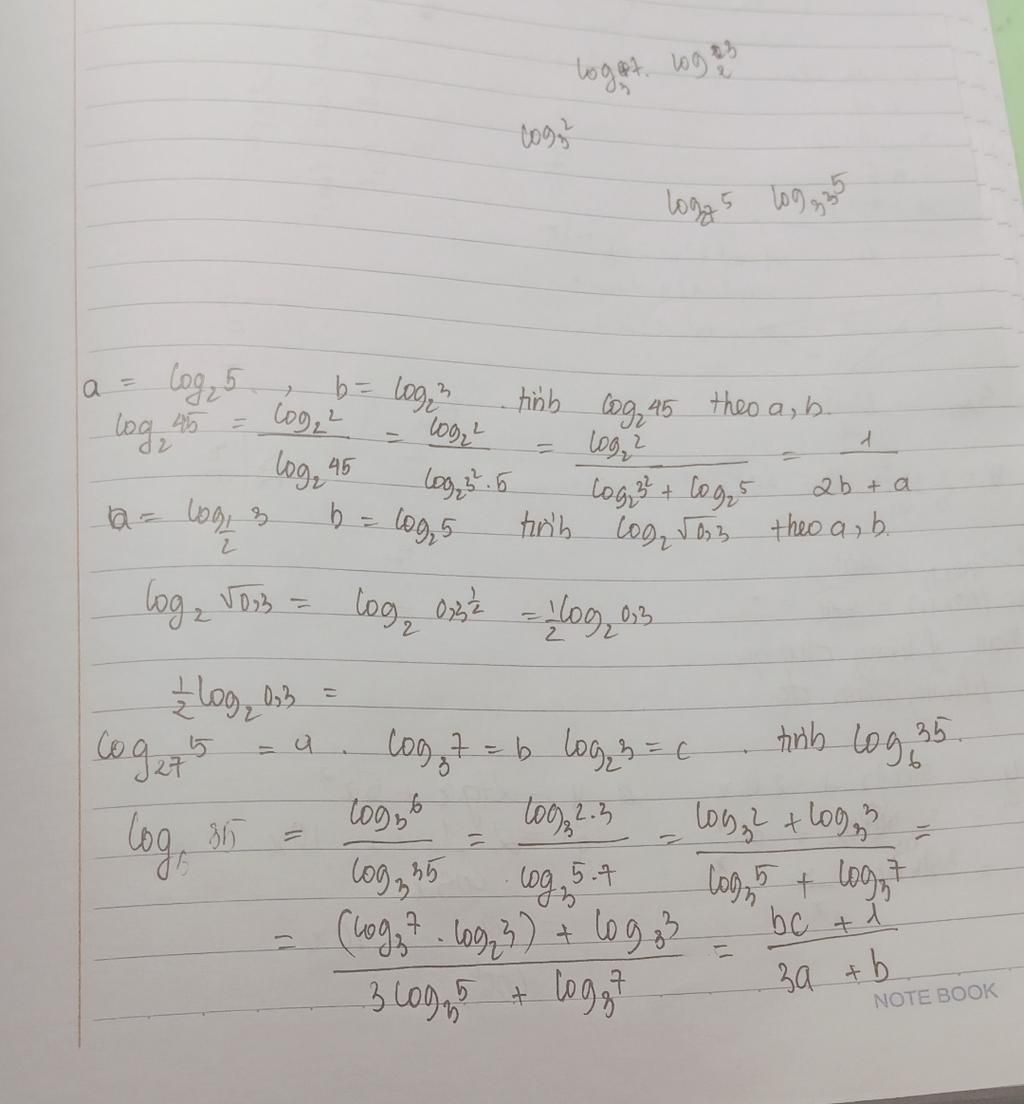 log₃7. log₂3
log₃2
log₂₇5 log₃5
a = log₂5 , b = log₂3 . tính log₂45 theo a, b.
log₂45 = log₂2 / log₂45 = log₂2 / log₂3².5 = log₂2 / (log₂3² + log₂5) = 1 / (2b + a)
a = log_(1/2) 3 b = log₂5 tính log₂√0,3 theo a, b.
log₂√0,3 = log₂ 0,3^(1/2) = 1/2 log₂ 0,3
1/2 log₂ 0,3 =
log₂₇5 = a . log₃7 = b log₂3 = c . tính log₆35.
log₆35 = log₃6 / log₃35 = log₃2.3 / log₃5.7 = (log₃2 + log₃3) / (log₃5 + log₃7) =
= ((log₃7 . log₂3) + log₃3) / (3log₃5 + log₃7) = (bc + 1) / (3a + b)
NOTE BOOK